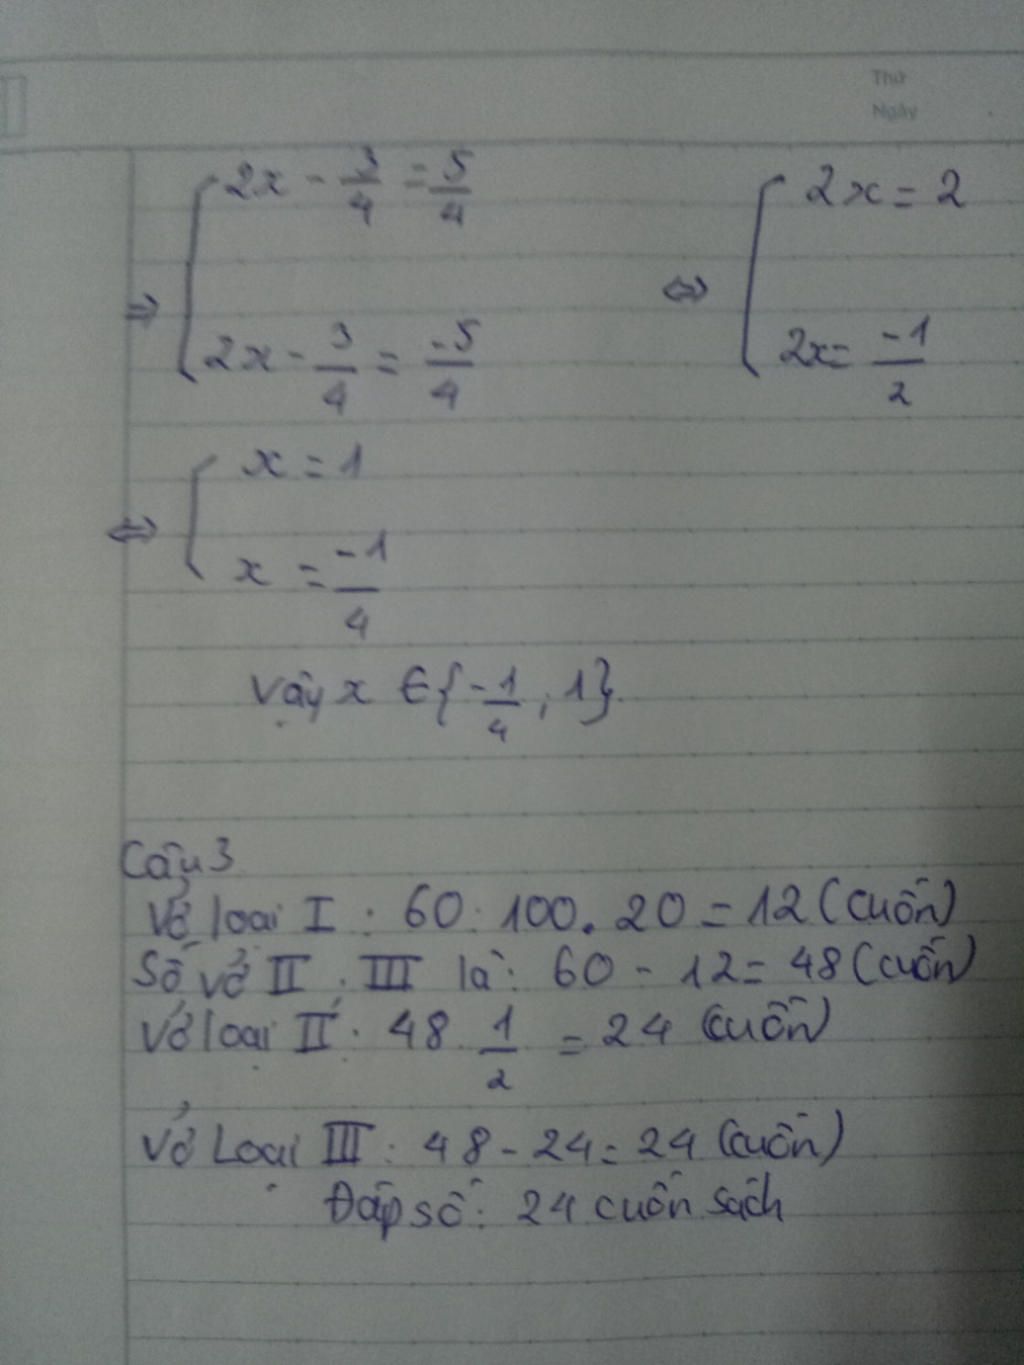 Thứ
Ngày
⇒ [ 2x - 3/4 = 5/4 ⇔ [ 2x = 2
2x - 3/4 = -5/4 2x = -1/2
⇔ [ x = 1
x = -1/4
Vậy x ∈ { -1/4 ; 1 }.
Câu 3
Vở loại I : 60 : 100 . 20 = 12 (cuốn)
Số vở II , III là : 60 - 12 = 48 (cuốn)
Vở loại II : 48 . 1/2 = 24 (cuốn)
Vở Loại III : 48 - 24 = 24 (cuốn)
Đáp số : 24 cuốn sách